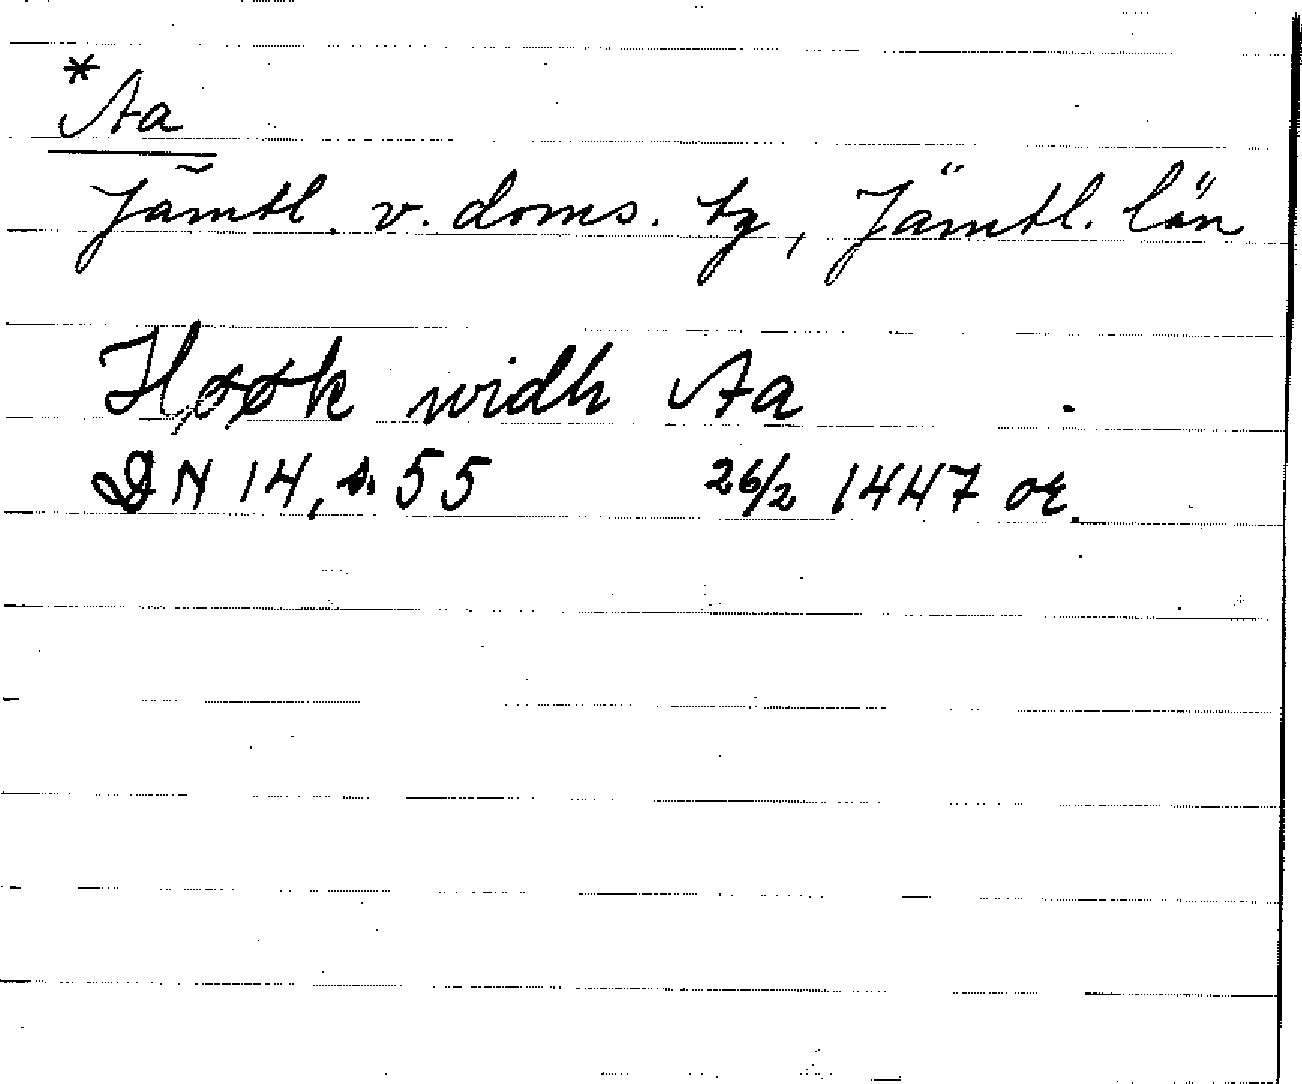 *Aa
Jämtl. v. doms. tg, Jämtl. län
Høøk widh Aa
DN 14, s. 55 26/2 1447 or.